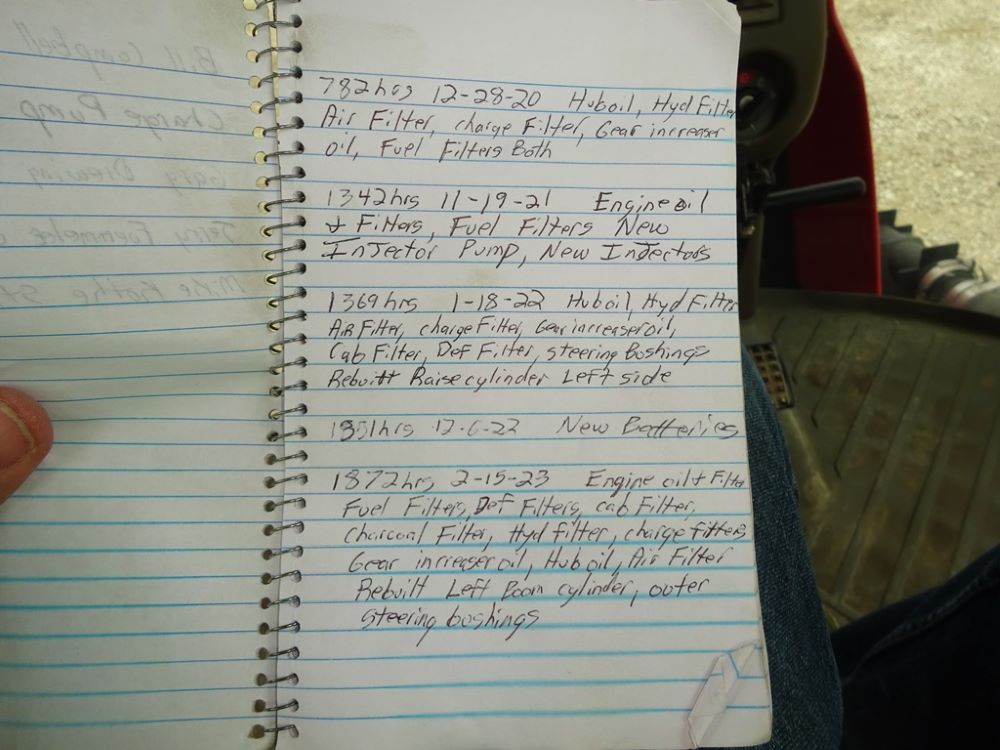 782hrs 12-28-20 Huboil, Hyd Filter
Air Filter, charge Filter, Gear increaser
oil, Fuel Filters Both
1342hrs 11-19-21 Engine oil
+ Filters, Fuel Filters New
InJector Pump, New InJectors
1369hrs 1-18-22 Huboil, Hyd Filter
AiR Filter, charge Filter, Gear increaser oil,
Cab Filter, Def Filter, steering Boshings
Rebuitt Raise cylinder Left side
1851hrs 12-6-22 New Batteries
1872hrs 2-15-23 Engine oil + Filter
Fuel Filters, Def Filters, cab Filter,
Charcoal Filter, Hyd filter, charge fitters
Gear increaser oil, Hub oil, Air Filter
Rebuilt Left Boom cylinder, outer
steering boshings
Bill Campbell
Charge Pump
Gary
Jerry
Mike